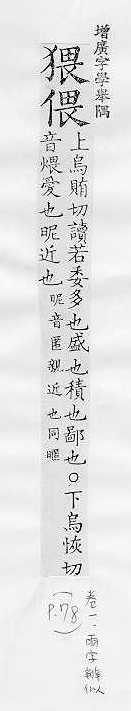 增廣字學舉隅
猥偎
上烏賄切讀若委多也盛也積也鄙也○下烏恢切
音煨愛也昵近也昵音匿親近也同暱
卷一·兩字辨似
(P.78)